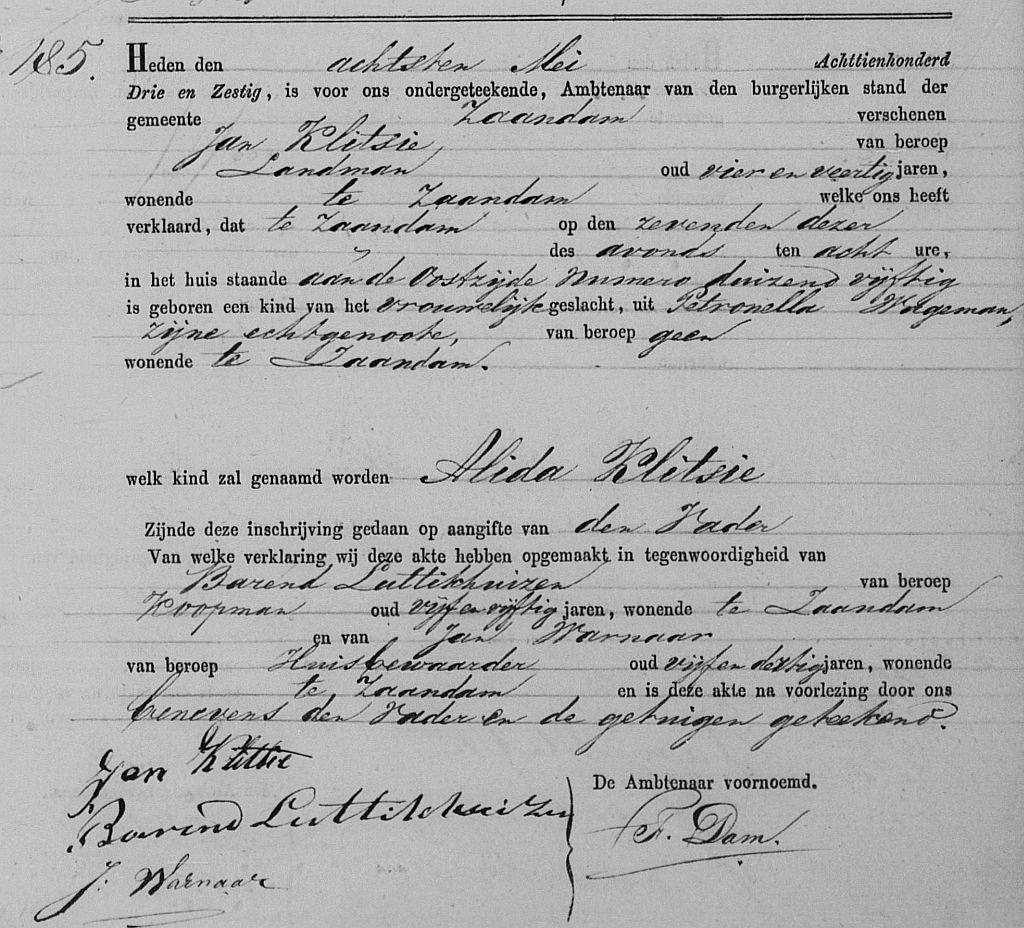 185. Heden den achtsten Mei Achttienhonderd
Drie en Zestig, is voor ons ondergeteekende, Ambtenaar van den burgerlijken stand der
gemeente Zaandam verschenen
Jan Klitsie, van beroep
Landman oud vier en veertig jaren,
wonende te Zaandam welke ons heeft
verklaard, dat te Zaandam op den zevenden dezer
des avonds ten acht ure,
in het huis staande aan de Oostzijde Numero duizend vijftig
is geboren een kind van het vrouwelijk geslacht, uit Petronella Wageman,
zijne echtgenoote, van beroep geen
wonende te Zaandam.
welk kind zal genaamd worden Alida Klitsie
Zijnde deze inschrijving gedaan op aangifte van den Vader
Van welke verklaring wij deze akte hebben opgemaakt in tegenwoordigheid van
Barend Luttikhuizen van beroep
Koopman oud vijf en vijftig jaren, wonende te Zaandam
en van Jan Warnaar
van beroep Huisbewaarder oud vijf en dertig jaren, wonende
te Zaandam en is deze akte na voorlezing door ons
benevens den Vader en de getuigen geteekend.
Jan Klitsie
Barend Luttikhuizen
J. Warnaar
De Ambtenaar voornoemd.
F. Dam.